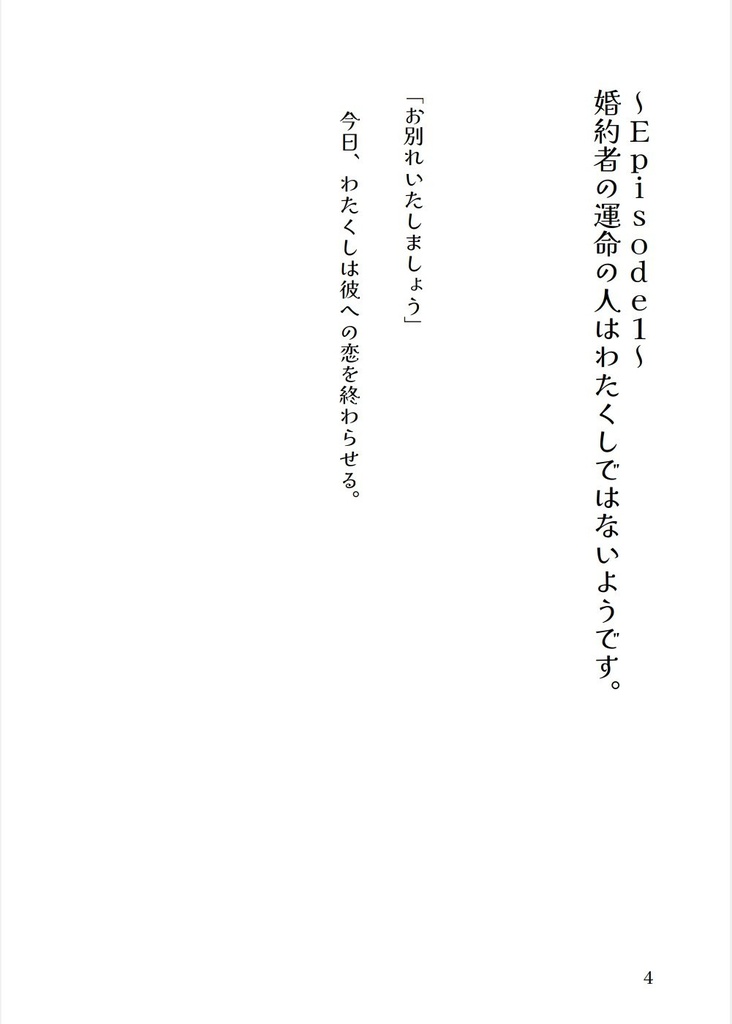 ～Episode1～
婚約者の運命の人はわたくしではないようです。
「お別れいたしましょう」
今日、わたくしは彼への恋を終わらせる。
4